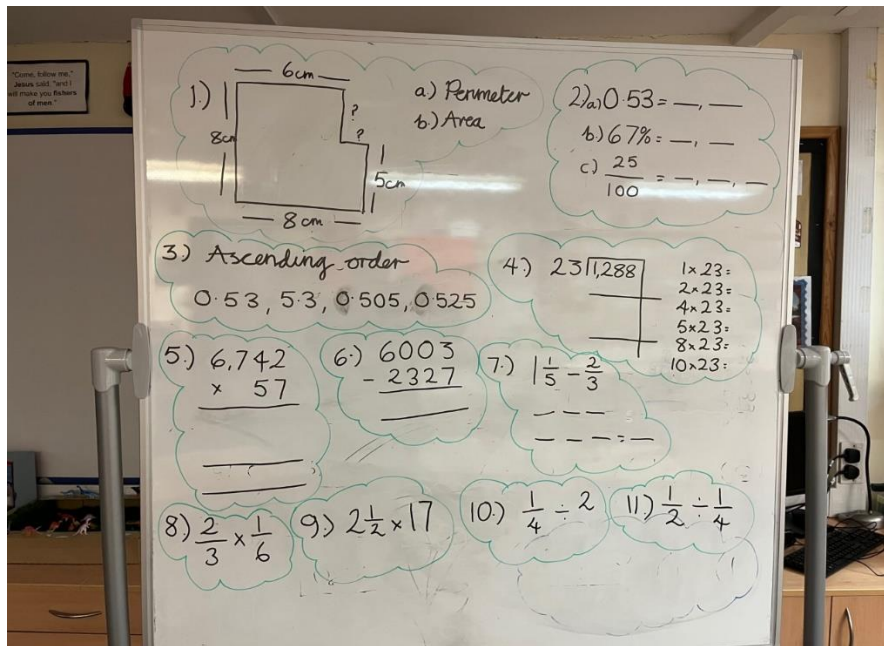 "Come, follow me,"
Jesus said, "and I
will make you fishers
of men."
1.)
6cm
8cm
?
?
5cm
8cm
a.) Perimeter
b.) Area
2.)a) 0.53 = __, __
b.) 67% = __, __
c.) 25/100 = __, __, __
3.) Ascending order
0.53, 5.3, 0.505, 0.525
4.) 23 1,288
1 x 23 =
2 x 23 =
4 x 23 =
5 x 23 =
8 x 23 =
10 x 23 =
5.) 6,742
x 57
6.) 6003
- 2327
7.) 1 1/5 - 2/3
_ _ _
_ _ _ = _
8) 2/3 x 1/6
9.) 2 1/2 x 17
10.) 1/4 ÷ 2
11.) 1/2 ÷ 1/4